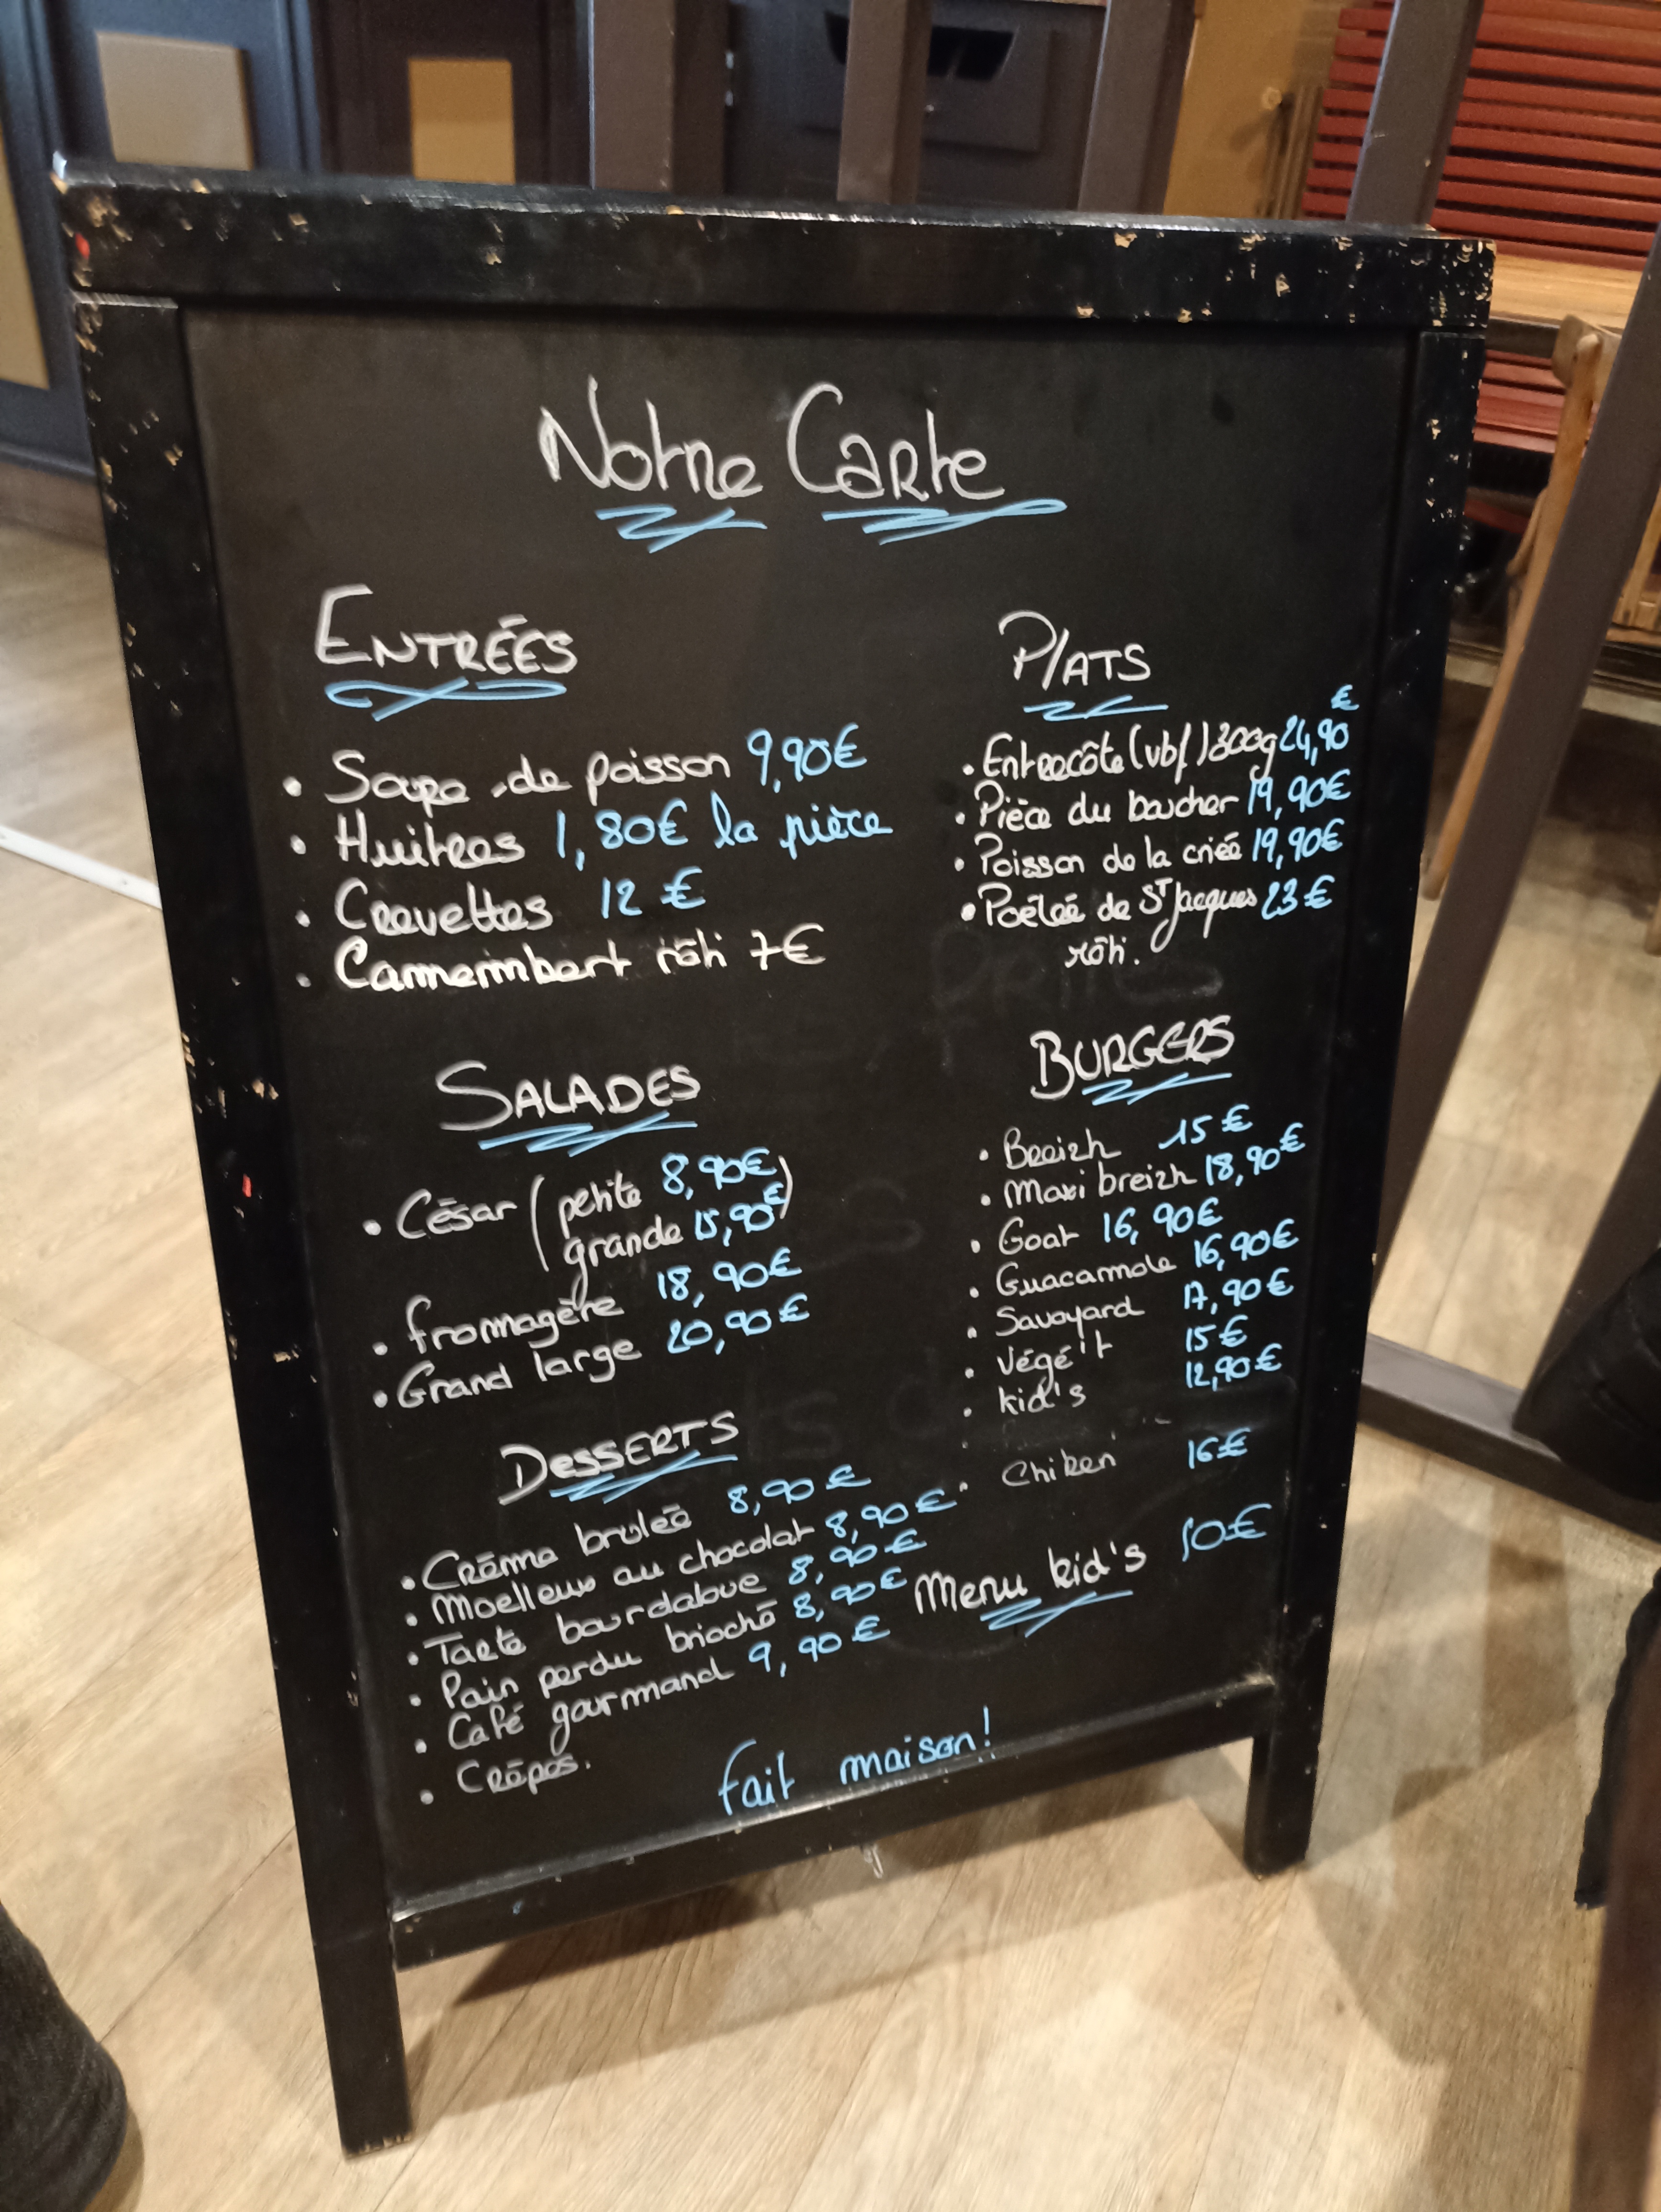 Notre Carte
ENTRÉES
• Soupe de poisson 9,90€
• Huitres 1,80€ la pièce
• Crevettes 12 €
• Camembert rôti 7€
PLATS
• Entrecôte (vbf) 300g 24,90 €
• Pièce du boucher 19,90€
• Poisson de la criée 19,90€
• Poêlée de ST Jacques 23 €
rôti.
SALADES
• César (petite 8,90€)
grande 15,90€
• fromagère 18,90€
• Grand large 20,90€
BURGERS
• Breizh 15 €
• Maxi breizh 18,90€
• Goat 16,90€
• Guacamole 16,90€
• Savoyard 17,90€
• Végé't 15€
• kid's 12,90€
• Chiken 16€
Menu kid's 10€
DESSERTS
• Crème brulée 8,90€
• Moelleux au chocolat 8,90€
• Tarte bourdaloue 8,90€
• Pain perdu brioché 8,90€
• Café gourmand 9,90€
• Crêpes.
fait maison!